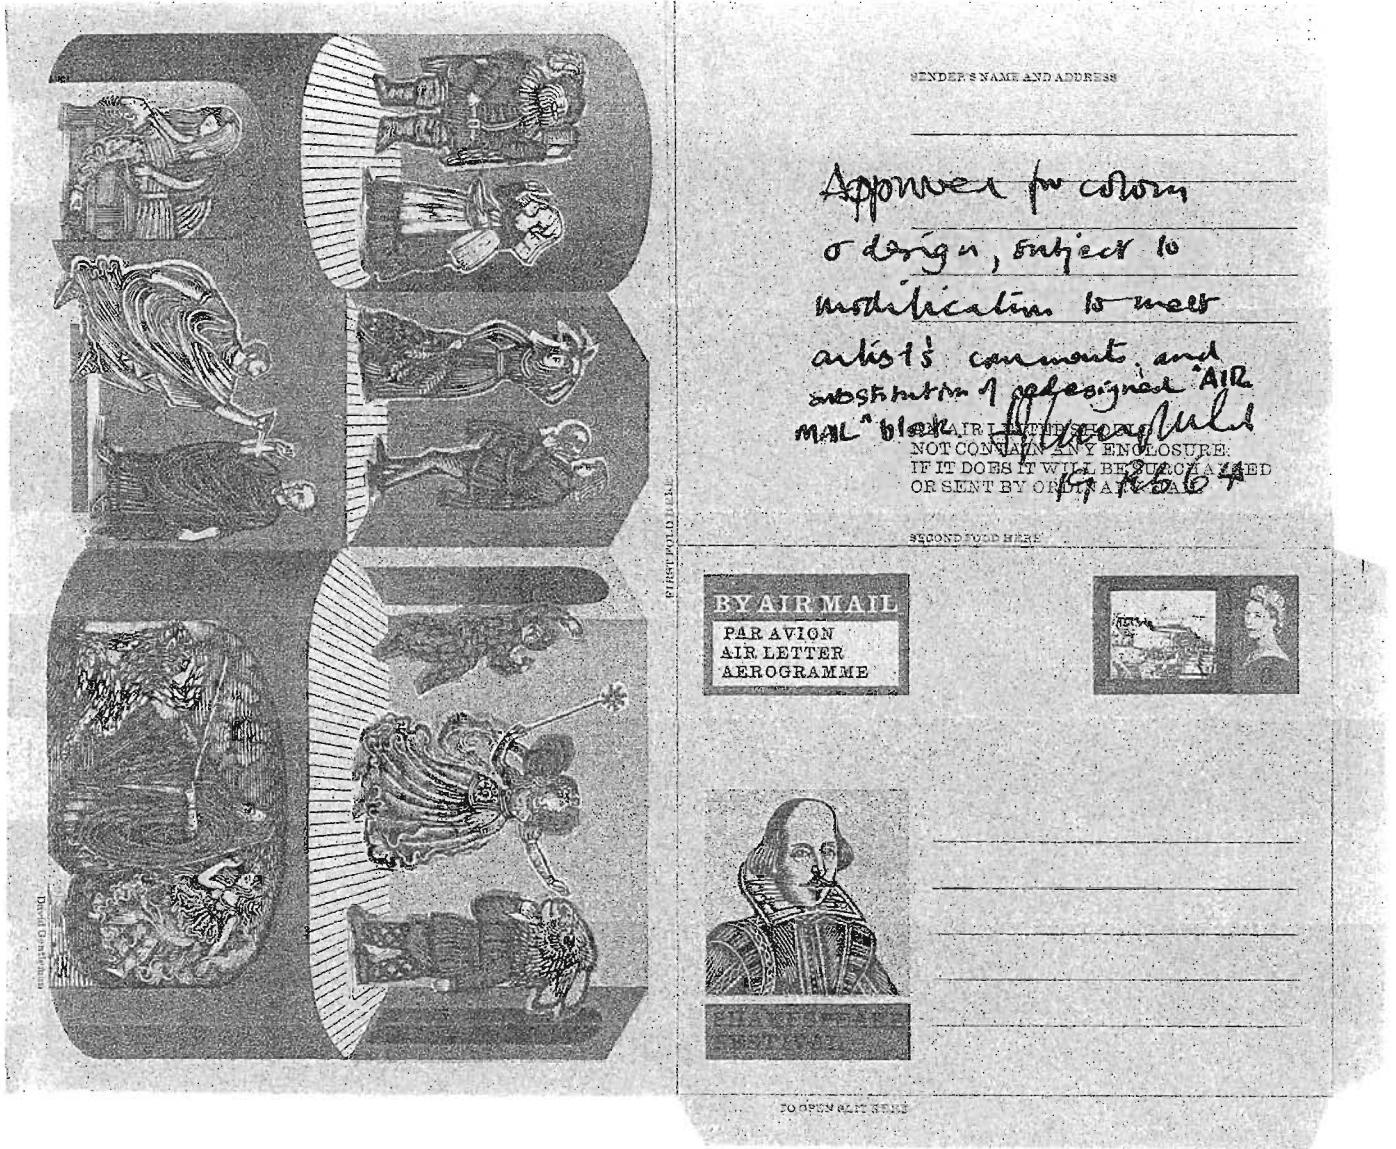 SENDER'S NAME AND ADDRESS
Approved for colour
& design, subject to
modification to meet
artist's comments and
substitution of redesigned "AIR
MAIL" block.
AN AIR LETTER SHOULD
NOT CONTAIN ANY ENCLOSURE;
IF IT DOES IT WILL BE SURCHARGED
OR SENT BY ORDINARY MAIL
19 Feb 64
SECOND FOLD HERE
FIRST FOLD HERE
BY AIR MAIL
PAR AVION
AIR LETTER
AEROGRAMME
SHAKESPEARE
FESTIVAL
TO OPEN SLIT HERE
David Gentleman